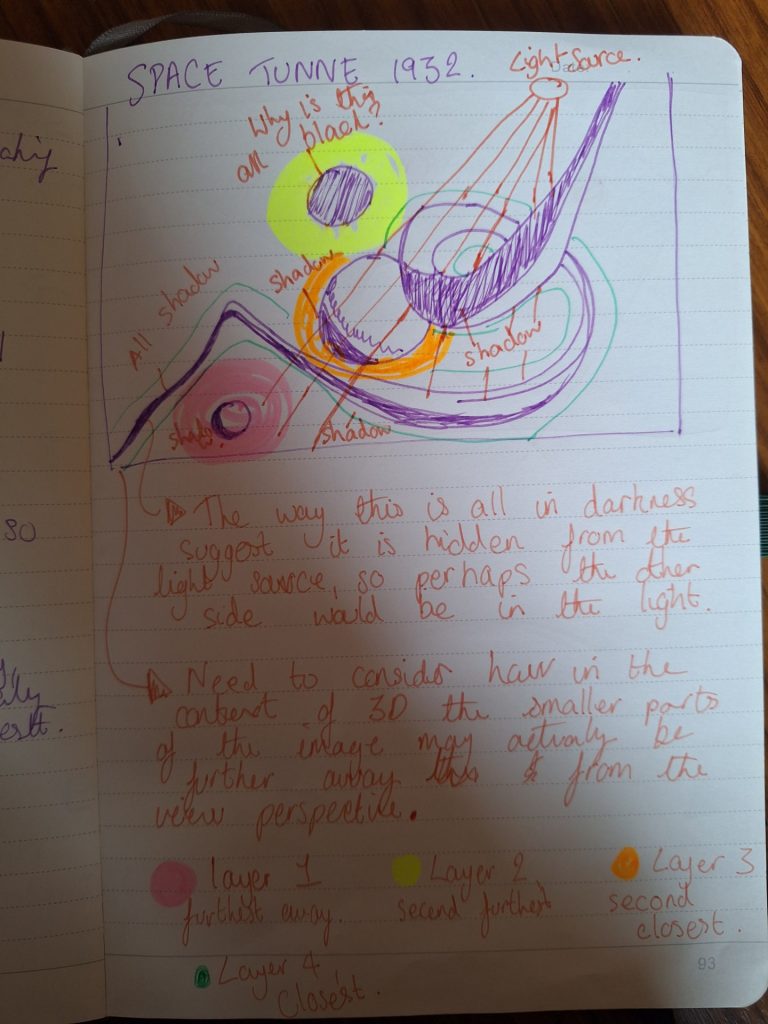 SPACE TUNNE 1932.
Light Source.
Why is this
all black?
shadow
All shadow
shadow
shadow
The way this is all in darkness
suggest it is hidden from the
light source, so perhaps the other
side would be in the light.
Need to consider how in the
context of 3D the smaller parts
of the image may actualy be
further away from the
view perspective.
layer 1
furthest away.
Layer 2
second furthest
Layer 3
second
closest.
Layer 4
Closest.
93
so